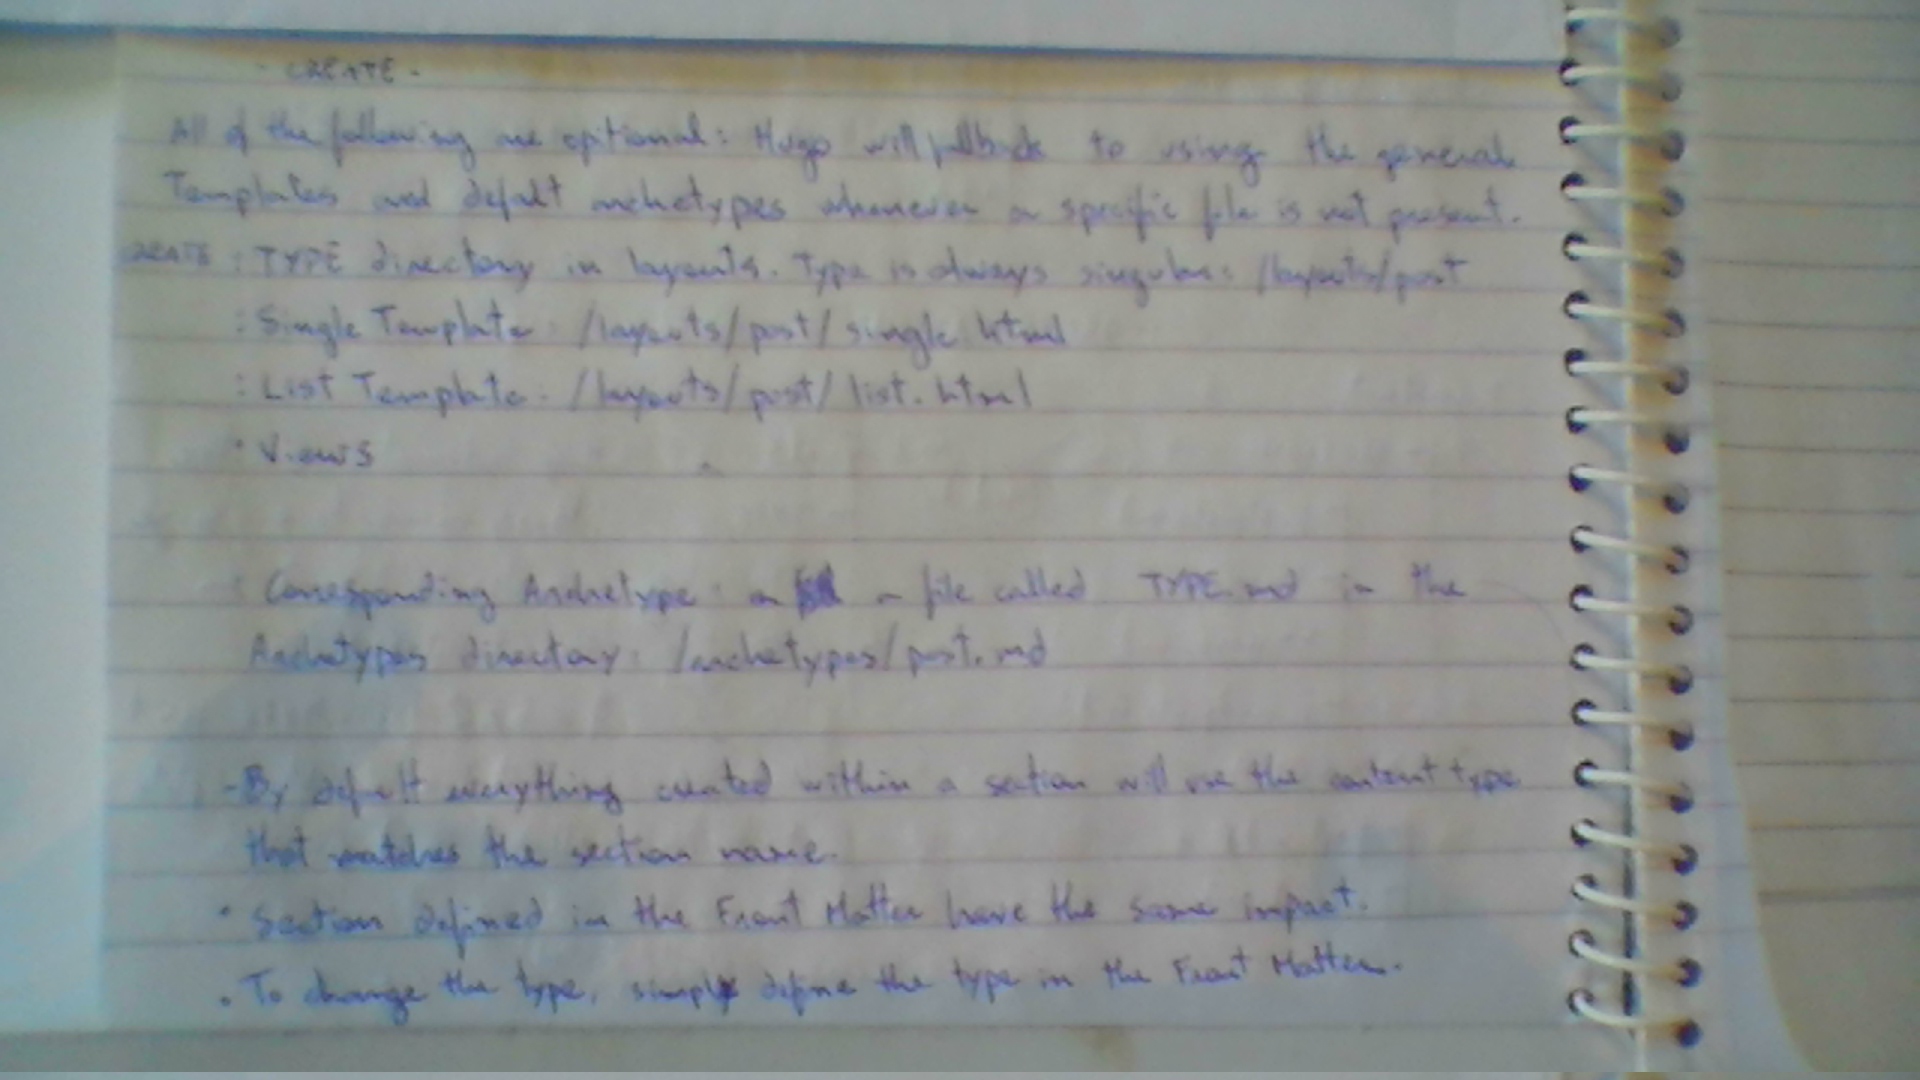 - CREATE -
All of the following are optional: Hugo will fallback to using the general
Templates and defalt archetypes whenever a specific file is not present.
CREATE : TYPE directory in layouts. Type is always singular: /layouts/post
: Single Template: /layouts/post/single.html
: List Template: /layouts/post/list.html
· Views
: Corresponding Archetype: a a file called TYPE.md in the
Archetypes directory: /archetypes/post.md
- By default everything created within a section will use the content type
that matches the section name.
· Section defined in the Front Matter have the same impact.
· To change the type, simply define the type in the Front Matter.